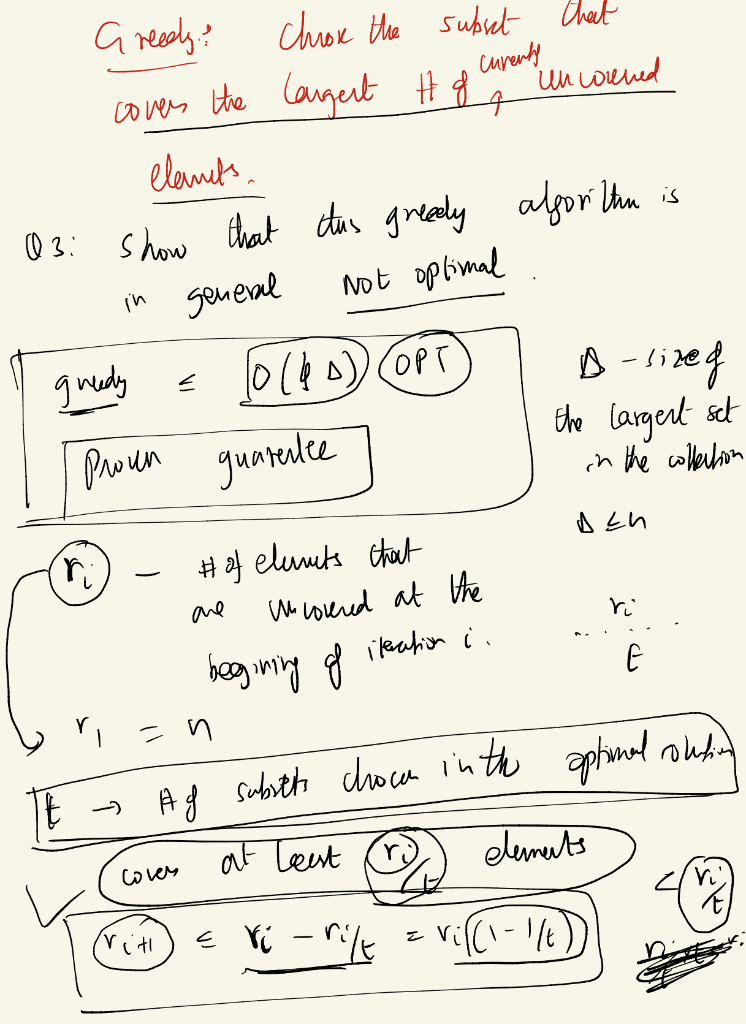 Greedy: Chose the subset that
covers the largest # of currently uncovered
elements.
Q3: Show that this greedy algorithm is
in general Not optimal.
greedy ≤ O(lg Δ) OPT
Proven guarantee
Δ - size of
the largest set
in the collection
Δ ≤ n
ri - # of elements that
are uncovered at the
begining of iteration i.
ri
t
r1 = n
t → # of subsets chosen in the optimal solution
covers at least ri/t elements
< ri/t
ri+1 ≤ ri - ri/t = ri(1 - 1/t)